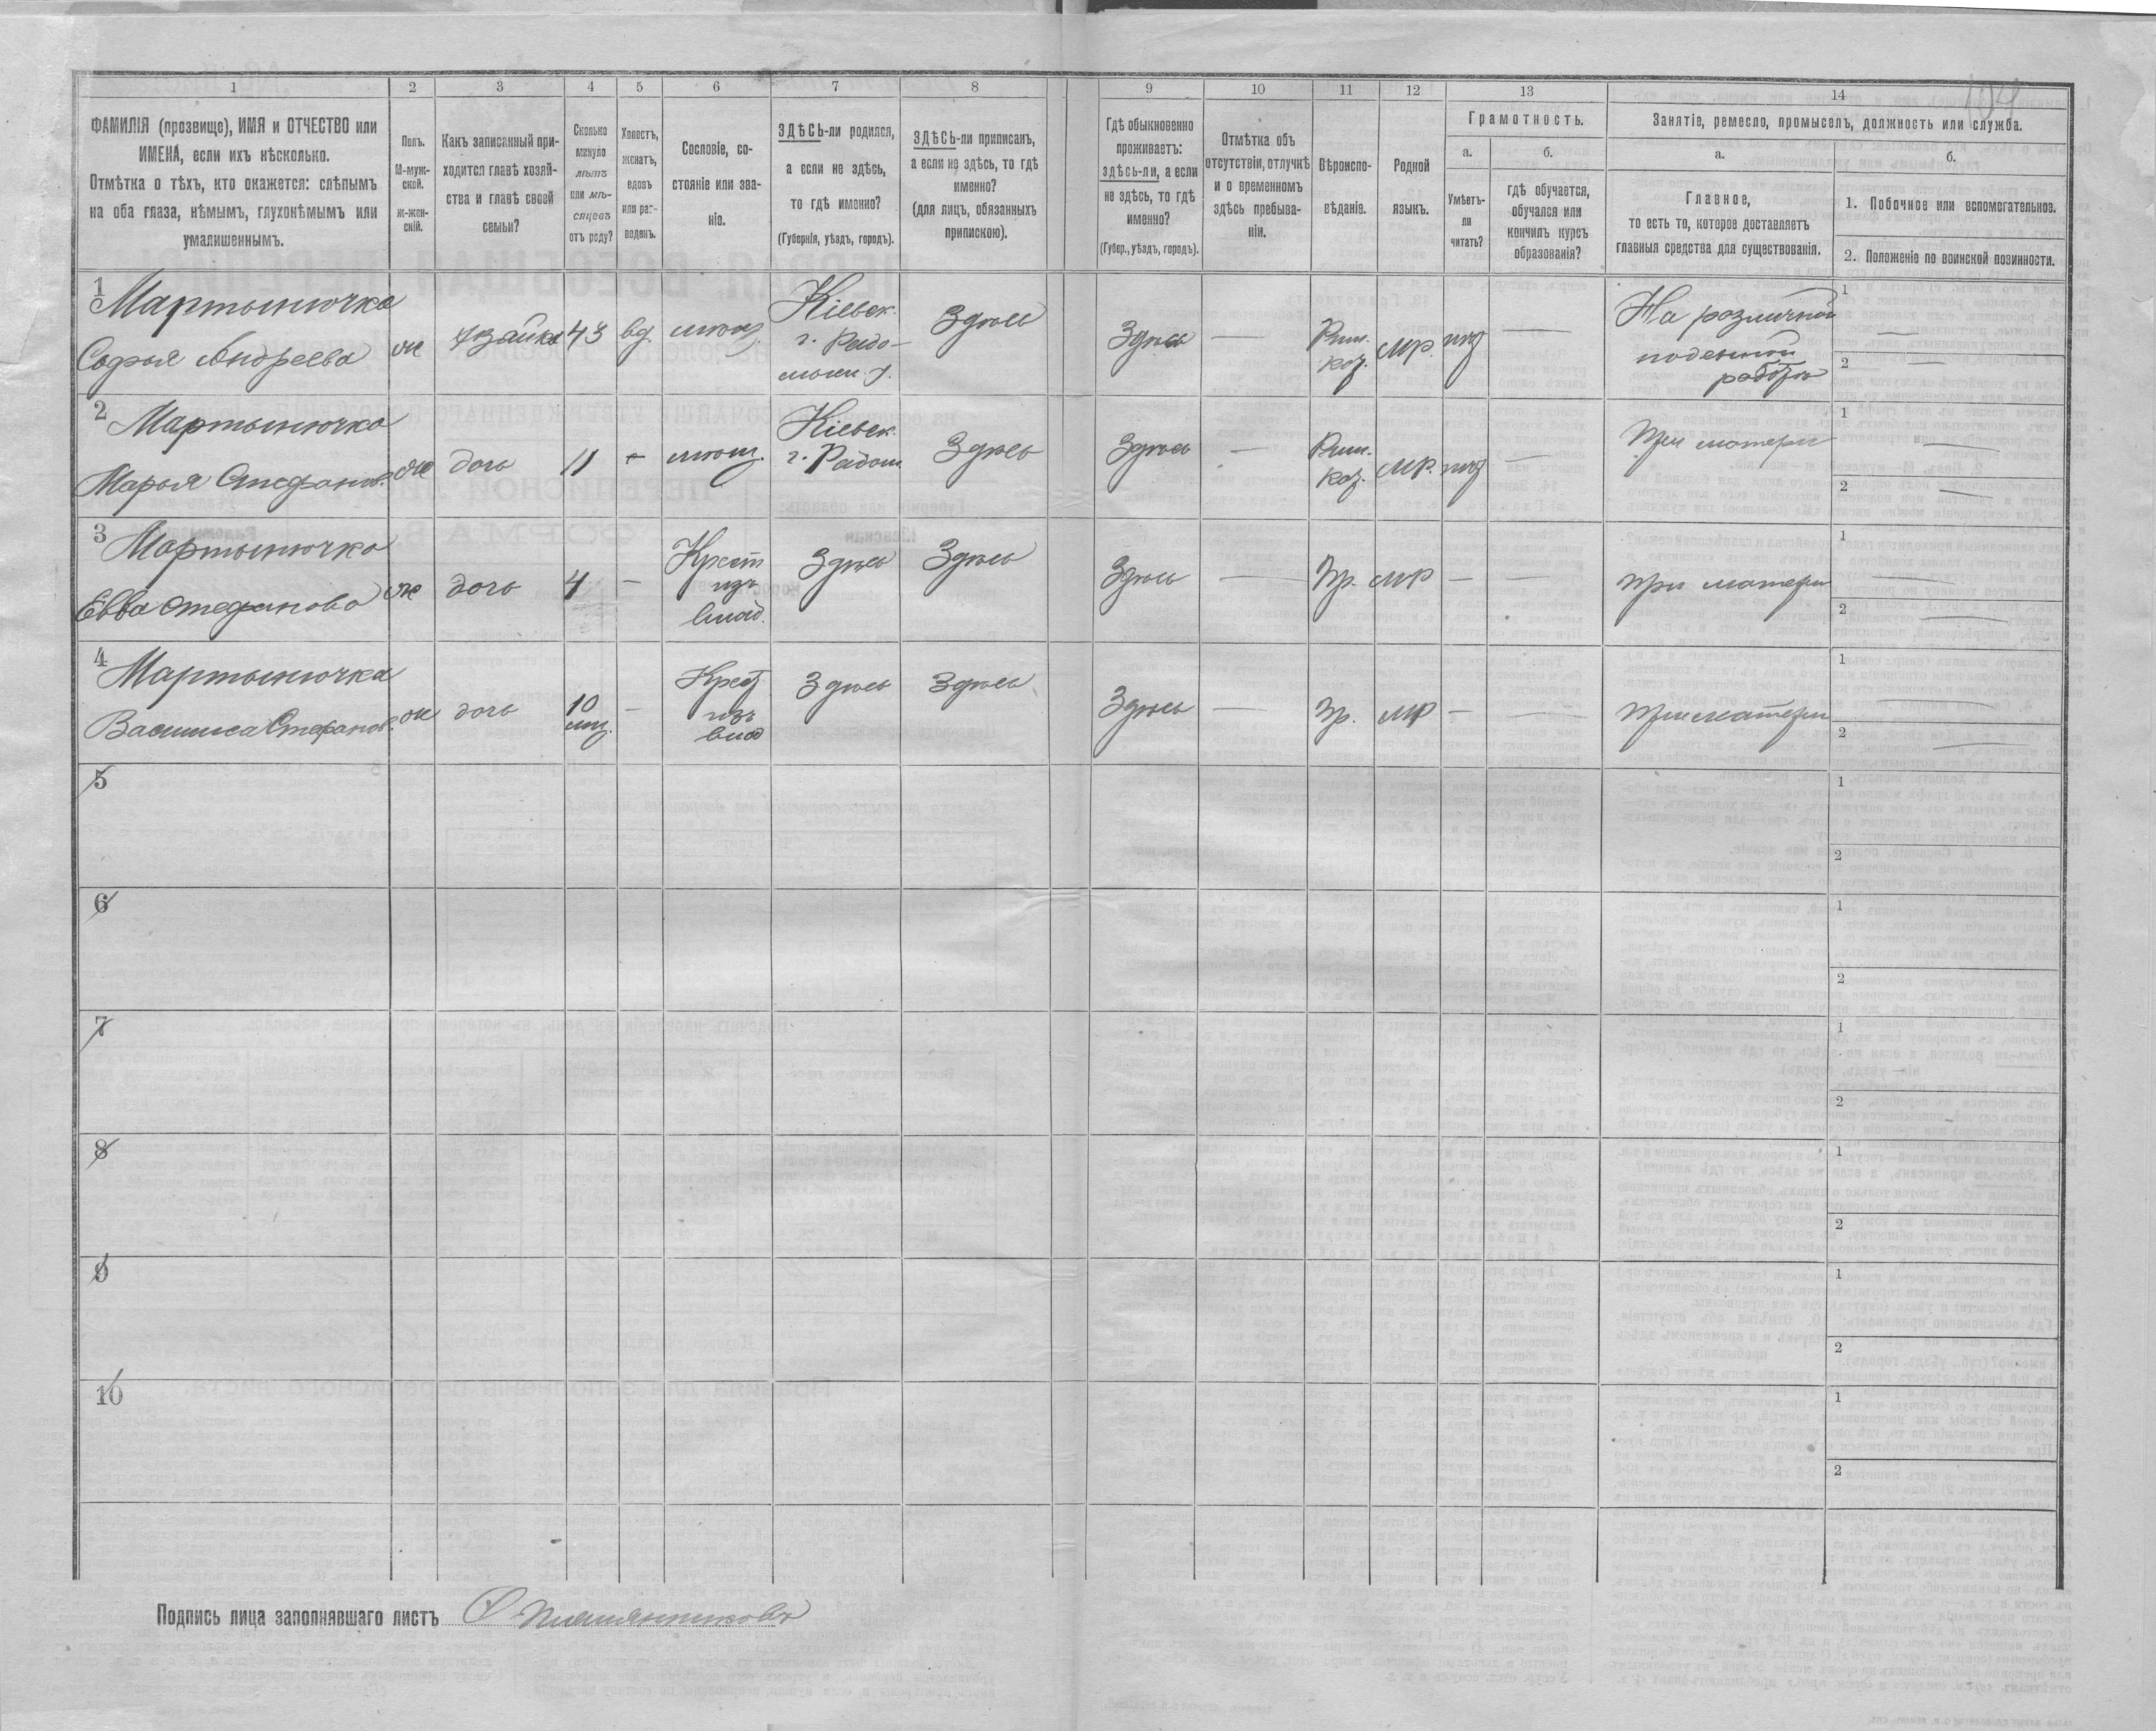 1 2 3 4 5 6 7 8 9 10 11 12 13 14
ФАМИЛІЯ (прозвище), ИМЯ и ОТЧЕСТВО или
ИМЕНА, если ихъ нѣсколько.
Отмѣтка о тѣхъ, кто окажется: слѣпымъ
на оба глаза, нѣмымъ, глухонѣмымъ или
умалишеннымъ.
Полъ.
М-муж-
ской.
Ж-жен-
скій.
Какъ записанный при-
ходится главѣ хозяй-
ства и главѣ своей
семьи?
Сколько
минуло
лѣтъ
или мѣ-
сяцевъ
отъ роду?
Холостъ,
женатъ,
вдовъ
или раз-
веденъ.
Сословіе, со-
стояніе или зва-
ніе.
ЗДѢСЬ-ли родился,
а если не здѣсь,
то гдѣ именно?
(Губернія, уѣздъ, городъ).
ЗДѢСЬ-ли приписанъ,
а если не здѣсь, то гдѣ
именно?
(для лицъ, обязанныхъ
припискою).
Гдѣ обыкновенно
проживаетъ:
здѣсь-ли, а если
не здѣсь, то гдѣ
именно?
(Губер., уѣздъ, городъ).
Отмѣтка объ
отсутствіи, отлучкѣ
и о временномъ
здѣсь пребыва-
ніи.
Вѣроиспо-
вѣданіе.
Родной
языкъ.
Грамотность.
а.
Умѣетъ-
ли
читать?
б.
гдѣ обучается,
обучался или
кончилъ курсъ
образованія?
Занятіе, ремесло, промыселъ, должность или служба.
а.
Главное,
то есть то, которое доставляетъ
главныя средства для существованія.
б.
1. Побочное или вспомогательное.
2. Положеніе по воинской повинности.
1 Мартынючка
Софья Андреева
ж
хозяйка
43
вд.
мѣщ.
Кіевск.
г. Радо-
мысл. у.
Здѣсь
Здѣсь
—
Рим.
кат.
мр.
нѣт
—
На различной
поденной
работѣ
1 —
2 —
2 Мартынючка
Марья Стефанов.
ж
дочь
11
—
мѣщ.
Кіевск.
г. Радом.
Здѣсь
Здѣсь
—
Рим.
кат.
мр.
нѣт
—
При матери
1 —
2 —
3 Мартынючка
Евва Стефанова
ж
дочь
4
—
Крест
изъ
влад.
Здѣсь
Здѣсь
Здѣсь
—
Пр.
мр
—
—
При матери
1 —
2 —
4 Мартынючка
Василиса Стефанов.
ж
дочь
10
мц.
—
Крест
изъ
влад
Здѣсь
Здѣсь
Здѣсь
—
Пр.
мр
—
—
При матери
1 —
2 —
5
1
2
6
1
2
7
1
2
8
1
2
9
1
2
10
1
2
Подпись лица заполнявшаго листъ